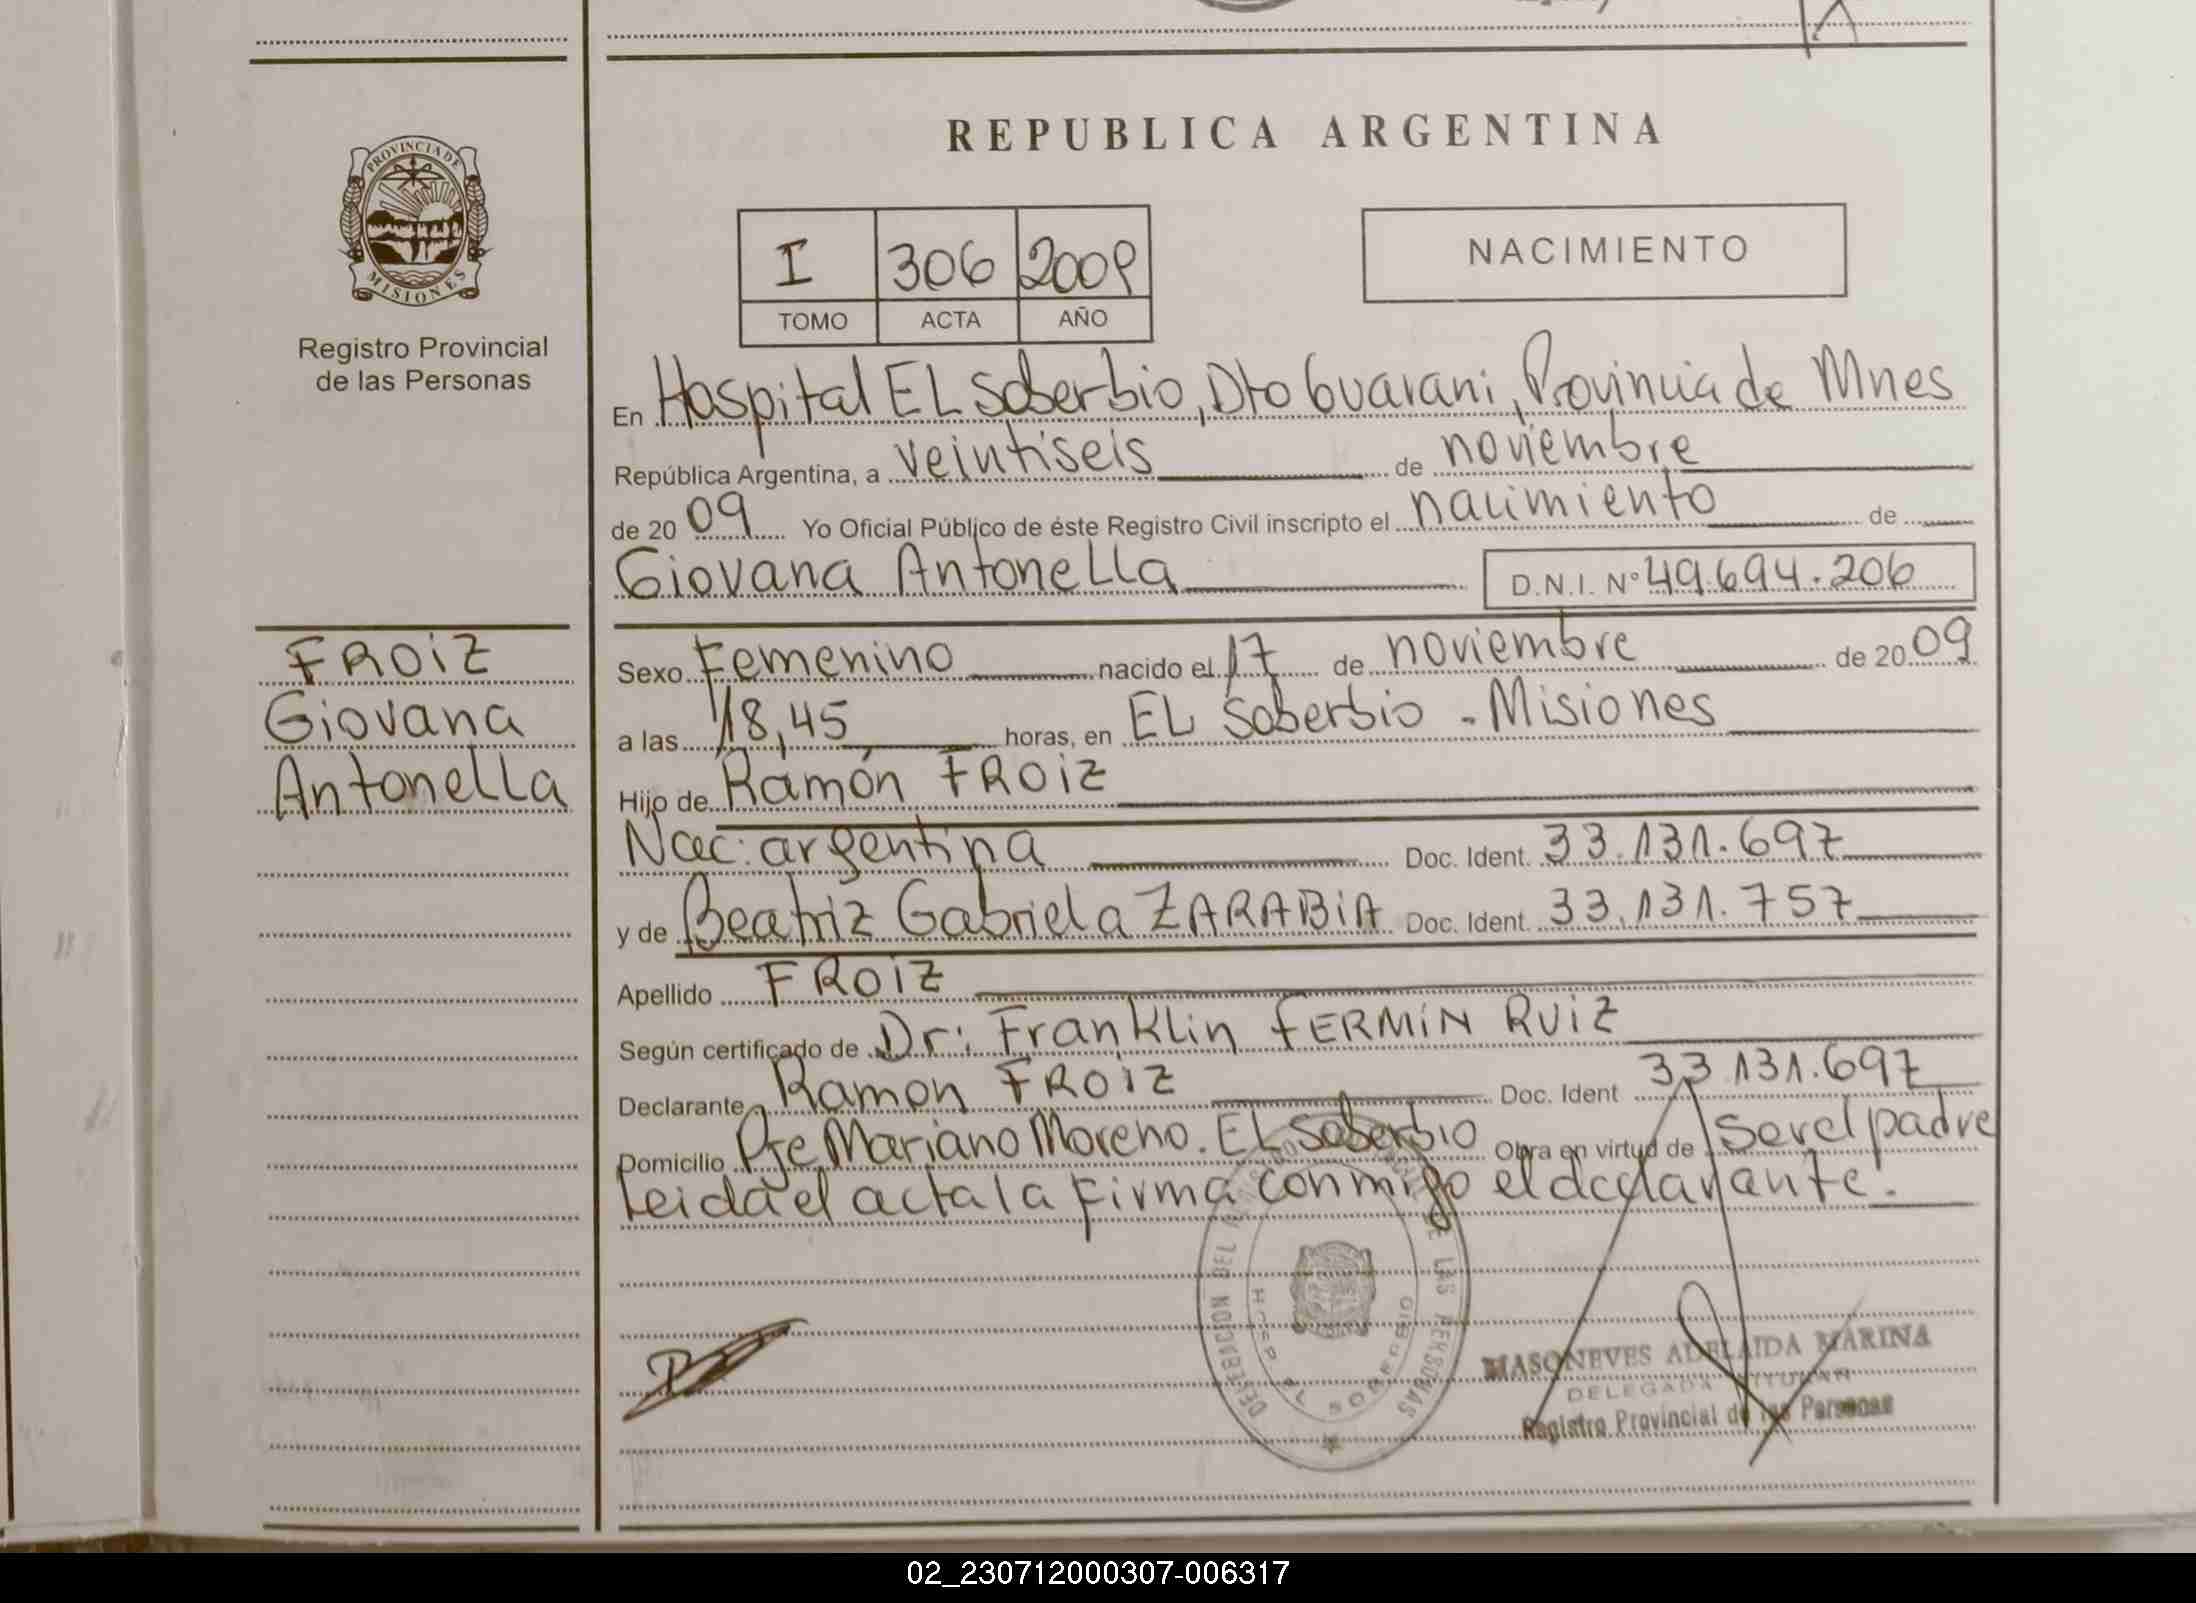 REPUBLICA ARGENTINA
PROVINCIA DE
MISIONES
Registro Provincial
de las Personas
I 306 2009
TOMO ACTA AÑO
NACIMIENTO
En Hospital EL Soberbio, Dto Guarani, Provincia de Mnes
República Argentina, a veintiseis de noviembre
de 2009 Yo Oficial Público de éste Registro Civil inscripto el nacimiento de
Giovana Antonella D.N.I. Nº 49.694.206
FROIZ
Giovana
Antonella
Sexo Femenino nacido el 17 de noviembre de 2009
a las 18,45 horas, en EL Soberbio - Misiones
Hijo de Ramón FROIZ
Nac: argentina Doc. Ident. 33.131.697
y de Beatriz Gabriela ZARABIA Doc. Ident. 33.131.757
Apellido FROIZ
Según certificado de Dr: Franklin FERMIN RUIZ
Declarante Ramon FROIZ Doc. Ident 33.131.697
Domicilio Pje Mariano Moreno. EL Soberbio Obra en virtud de ser el padre
Leida el acta la firma conmigo el declarante.
DELEGACION DEL DE LAS PERSONAS
HOSP EL SOBERBIO
MASONEVES ADELAIDA MARINA
DELEGADA TITULAR
Registro Provincial de las Personas
02_230712000307-006317